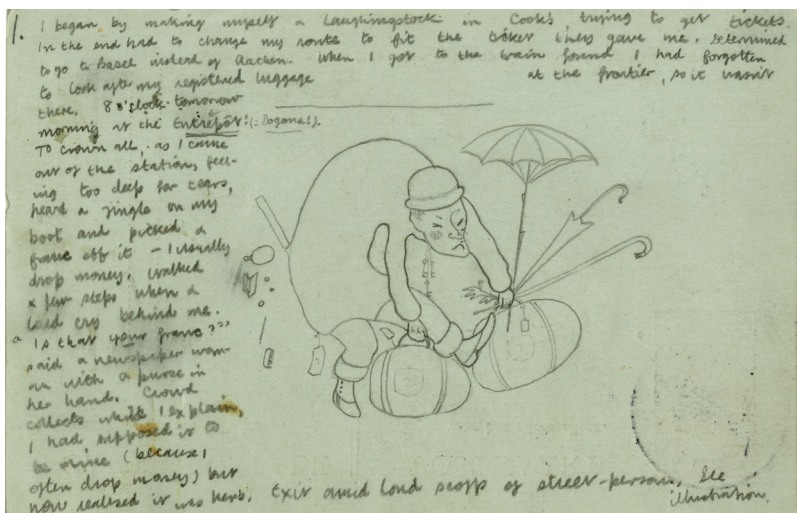 1. I began by making myself a laughingstock in Cook's, trying to get tickets.
In the end had to change my route to fit the ticket they gave me. Determined
to go to Basel instead of Aachen. When I got to the train found I had forgotten
to look after my registered luggage at the frontier, so it wasn't
there. 8 o'clock tomorrow
morning at the Entrepôt! (= Dogana!).
To crown all, as I came
out of the station, feel-
ing too deep for tears,
heard a jingle on my
boot and picked a
franc off it – I usually
drop money. Walked
a few steps when a
loud cry behind me.
"Is that your franc?"
said a newspaper wom-
an with a purse in
her hand. Crowd
collects while I explain,
I had supposed it to
be mine (because I
often drop money) but
now realized it was hers. Exit amid loud scoffs of street-persons. See
illustration.